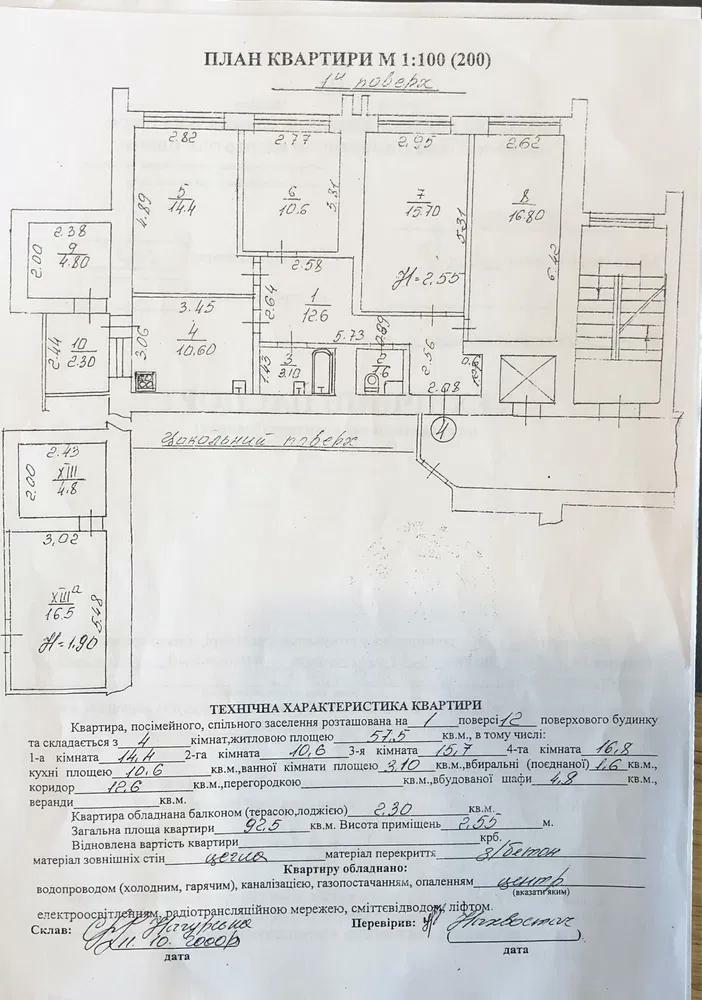 ПЛАН КВАРТИРИ М 1:100 (200)
1й поверх
2.82
2.77
2.95
2.62
4.89
5
14.4
6
10.6
5.31
7
15.70
5.31
8
16.80
6.42
2.38
9
4.80
2.00
2.58
Н=2.55
2.64
1
12.6
3.45
4
10.60
3.06
5.73
0.89
2.44
10
2.30
1.43
3
3.10
2
1.6
2.56
2.08
4
Цокольний поверх
2.43
XIII
4.8
2.00
3,02
XIIIа
16.5
5.48
Н=1.90
ТЕХНІЧНА ХАРАКТЕРИСТИКА КВАРТИРИ
Квартира, посімейного, спільного заселення розташована на 1 поверсі 12 поверхового будинку
та складається з 4 кімнат,житловою площею 57,5 кв.м., в тому числі:
1-а кімната 14,4 2-га кімната 10,6 3-я кімната 15,7 4-та кімната 16,8
кухні площею 10,6 кв.м.,ванної кімнати площею 3,10 кв.м.,вбиральні (поєднаної) 1,6 кв.м.,
коридор 12,6 кв.м.,перегородкою кв.м.,вбудованої шафи 4,8 кв.м.,
веранди кв.м.
Квартира обладнана балконом (терасою,лоджією) 2.30 кв.м.
Загальна площа квартири 92,5 кв.м. Висота приміщень 2,55 м.
Відновлена вартість квартири крб.
матеріал зовнішніх стін цегла матеріал перекриття з/бетон
Квартиру обладнано:
водопроводом (холодним, гарячим), каналізацією, газопостачанням, опаленням центр
(вказати яким)
електроосвітленням, радіотрансляційною мережею, сміттєвідводом, ліфтом.
Склав: Перевірив:
11.10.2000р
дата дата